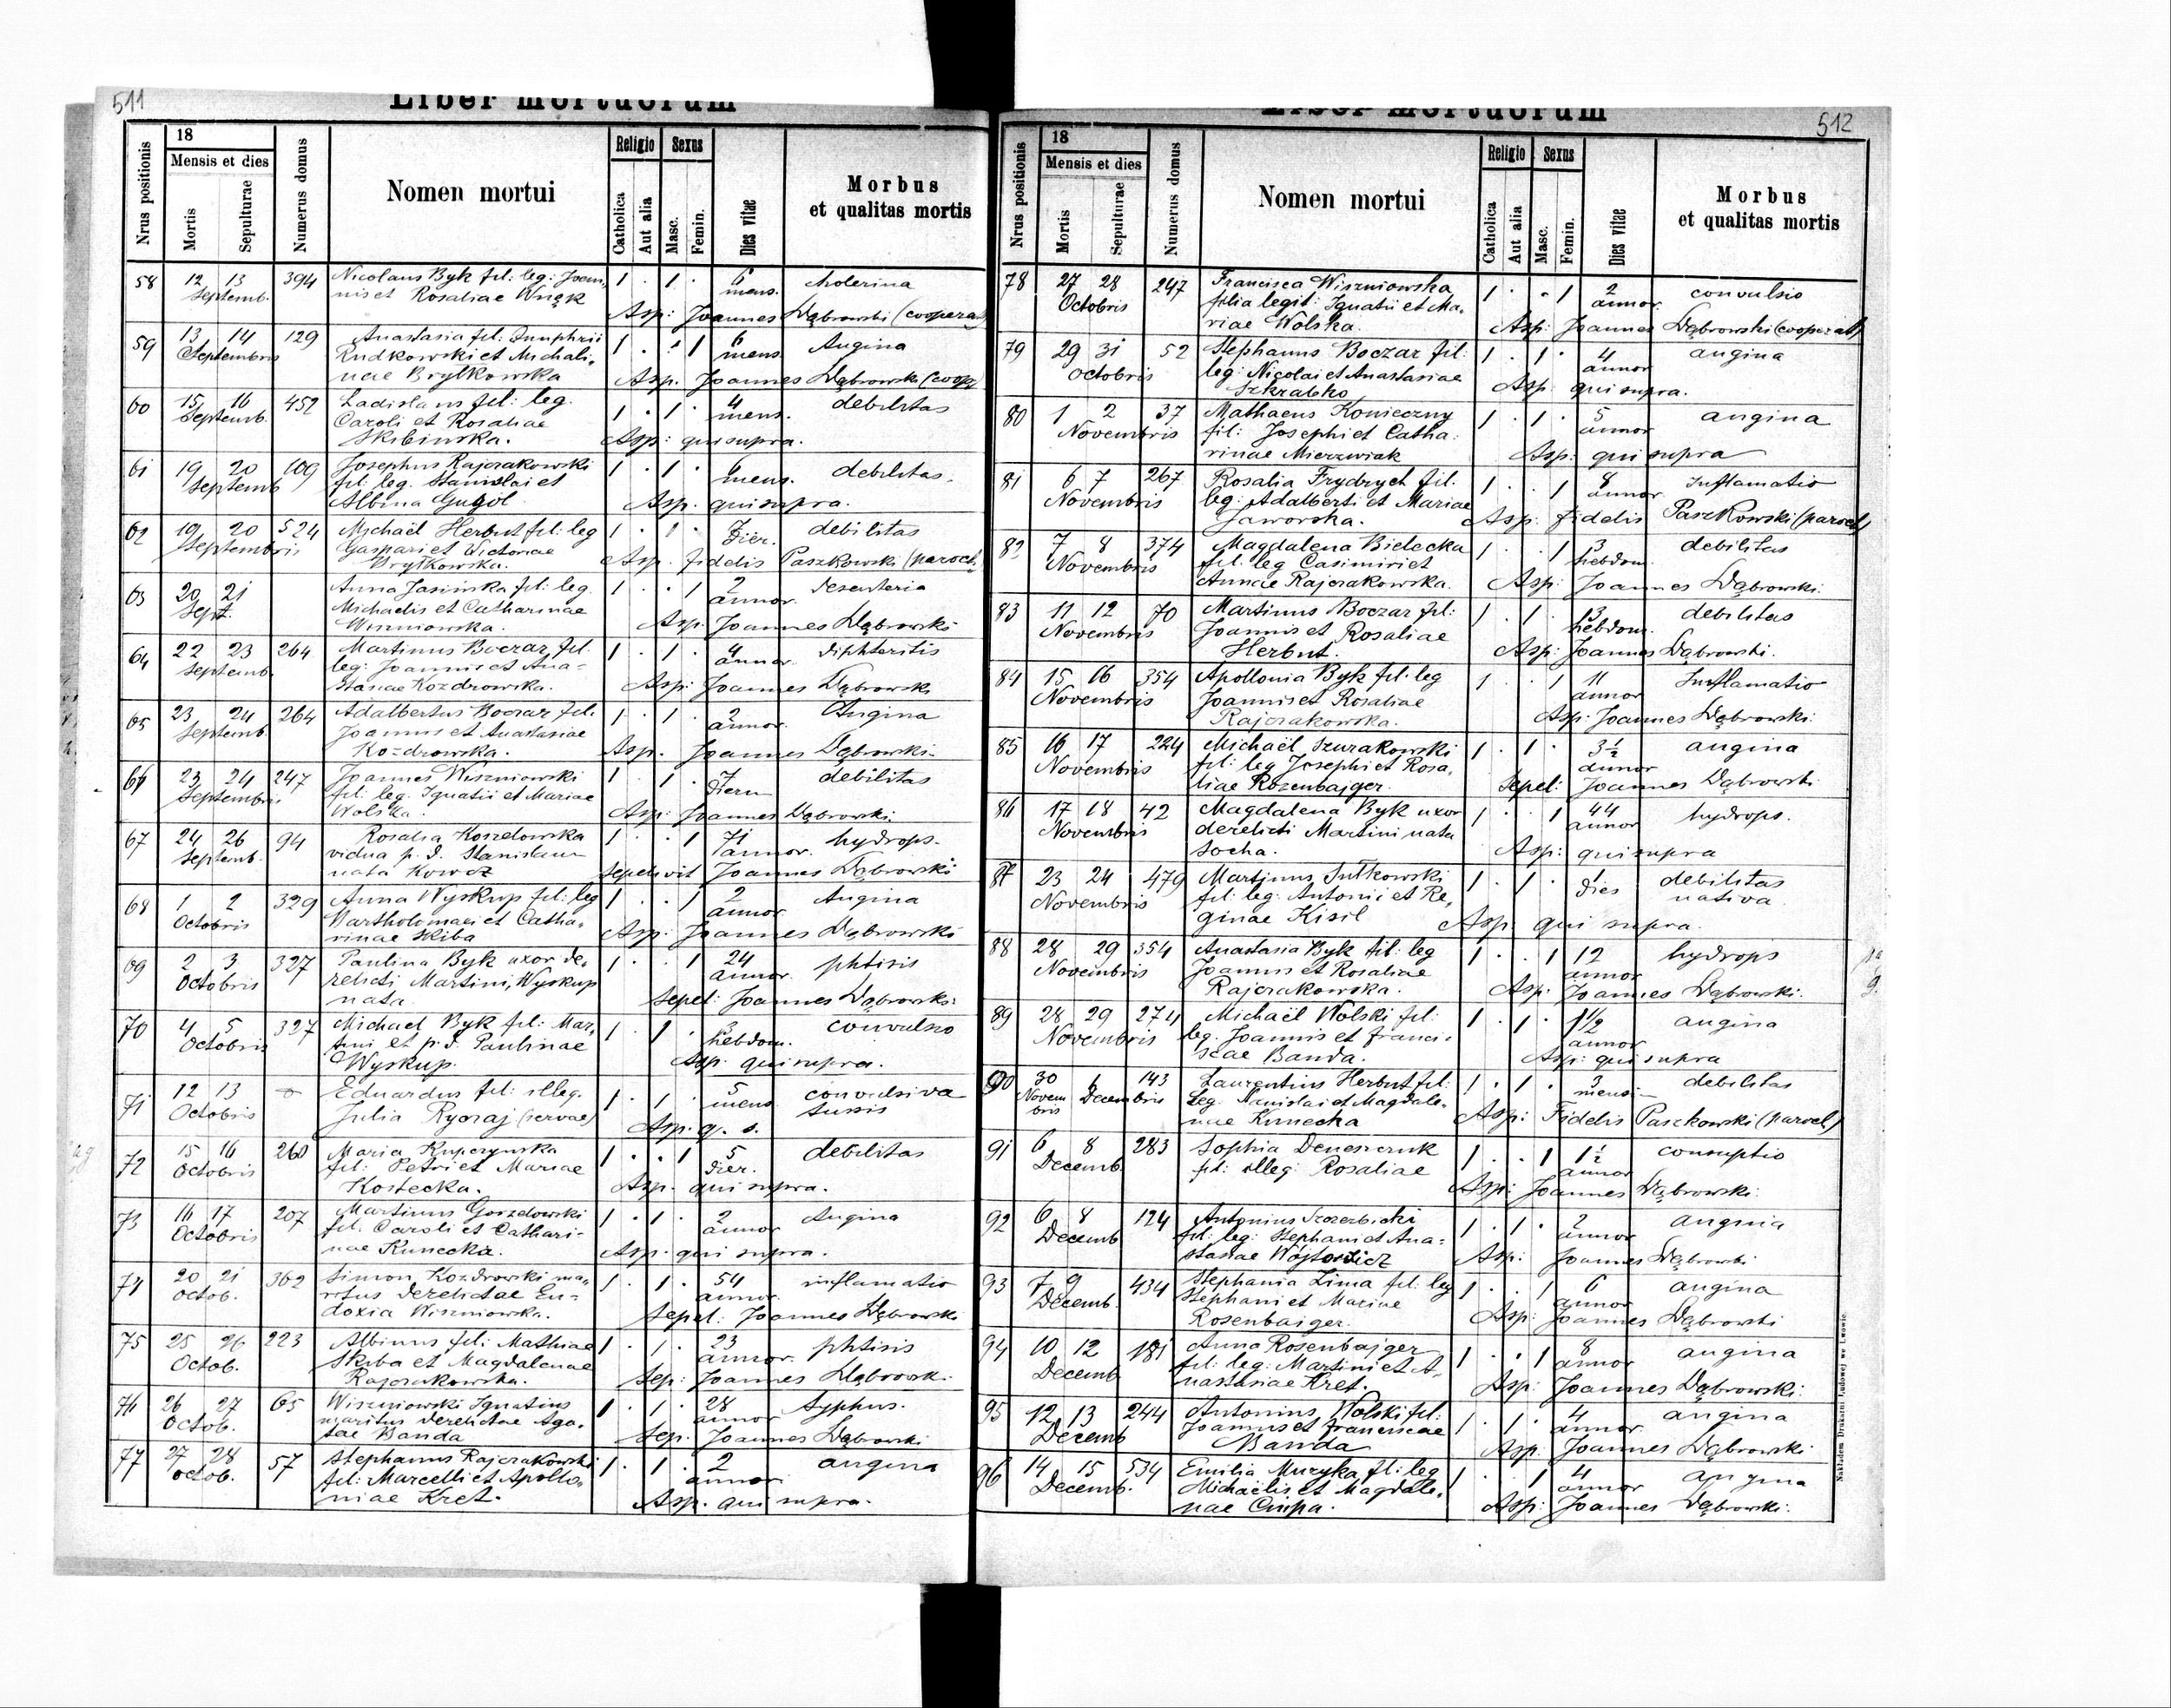 511
Liber mortuorum
Nrus positionis
18
Mensis et dies
Mortis
Sepulturae
Numerus domus
Nomen mortui
Religio
Catholica
Aut alia
Sexus
Masc.
Femin.
Dies vitae
Morbus
et qualitas mortis
58 12 13 394 Nicolaus Byk fil: leg: Joan, 1 . 1 . 6 cholerina
Septemb. nis et Rosaliae Wnęk mens.
Asp: Joannes Dąbrowski (cooperat)
59 13 14 129 Anastasia fil: Onuphrii 1 . . 1 6 Angina
Septembris Rudkowski et Michali, mens
nae Brylkowska Asp. Joannes Dąbrowski (coop)
60 15 16 452 Ladislaus fil: leg. 1 . 1 . 4 debilitas
Septemb. Caroli et Rosaliae mens.
Skibinska. Asp: qui supra.
61 19 20 109 Josephus Rajczakowski 1 . 1 . 6 debilitas.
Septemb fil: leg. Stanislai et mens.
Albina Gugól Asp: qui supra.
62 19 20 524 Michaël Herbut fil: leg 1 . 1 . 7 debilitas
Septembris Gaspari et Victoriae dier.
Brylkowska. Asp. Fidelis Paszkowski (paroch)
63 20 21 Anna Jasinska fil: leg. 1 . . 1 2 desenteria
Sept. Michaelis et Catharinae annor.
Wiszniowska. Asp: Joannes Dąbrowski
64 22 23 264 Martinus Boczar fil. 1 . 1 . 4 diphteritis
Septemb. leg: Joannis et Ana- annor.
stasiae Kozdrowska. Asp: Joannes Dąbrowski
65 23 24 264 Adalbertus Boczar fil. 1 . 1 . 2 Angina
Septemb. Joannis et Anastasiae annor.
Kozdrowska. Asp. Joannes Dąbrowski.
66 23 24 247 Joannes Wiszniowski 1 . 1 . 7 debilitas
Septembris fil. leg. Ignatii et Mariae dierum
Wolska. Asp: Joannes Dąbrowski.
67 24 26 94 Rosalia Koszelowska 1 . . 1 71 hydrops.
Septemb. vidua p. d. Stanislaum annor.
nata Kowcz Sepelivit Joannes Dąbrowski
68 1 2 329 Anna Wyskup fil: leg 1 . . 1 2 Angina
Octobris Bartholomaei et Catha, annor
rinae Skiba Asp: Joannes Dąbrowski
69 2 3 327 Paulina Byk uxor de, 1 . . 1 24 phtisis
Octobris relicti Martini, Wyskup annor.
nata Sepel: Joannes Dąbrowski:
70 4 5 327 Michael Byk fil: Mar, 1 . 1 . 3 convulsio
Octobris tini et p. d. Paulinae hebdom.
Wyskup. Asp. qui supra.
71 12 13 Eduardus fil: illeg. 1 . 1 . 5 convulsiva
Octobris Julia (servae) mens tussis
Asp. q. s.
72 15 16 260 Maria Kupczynska 1 . . 1 5 debilitas
Octobris fil: Petri et Mariae dier.
Kostecka. Asp. qui supra.
73 16 17 207 Martinus Gorzelowski 1 . 1 . 2 Angina
Octobris fil. Caroli et Cathari- annor
nae Kunecka. Asp. qui supra.
74 20 21 362 Simon Kozdrowski ma, 1 . 1 . 54 inflamatio
Octob. ritus derelictae Eu- annor.
doxia Wiszniowska. Sepel: Joannes Dąbrowski
75 25 26 223 Albinus fil: Mathiae 1 . 1 . 23 phtisis
Octob. Skiba et Magdalenae annor.
Rajczakowska. Sep: Joannes Dąbrowski.
76 26 27 65 Wiszniowski Ignatius 1 . 1 . 28 typhus.
Octob. maritus derelictae Aga, annor
tae Banda Sep: Joannes Dąbrowski
77 27 28 57 Stephanus Rajczakowski 1 . 1 . 2 angina
octob. fil: Marcelli et Apollo, annor
niae Kret. Asp. qui supra.
512
Liber mortuorum
Nrus positionis
18
Mensis et dies
Mortis
Sepulturae
Numerus domus
Nomen mortui
Religio
Catholica
Aut alia
Sexus
Masc.
Femin.
Dies vitae
Morbus
et qualitas mortis
78 27 28 247 Francisca Wiszniowska 1 . . 1 2 convulsio
Octobris filia legit: Ignatii et Ma, annor.
riae Wolska. Asp: Joannes Dąbrowski (cooperat)
79 29 31 52 Stephanus Boczar fil: 1 . 1 . 4 angina
octobris leg: Nicolai et Anastasiae annor
Szkrabko Asp: qui supra.
80 1 2 37 Mathaeus Konieczny 1 . 1 . 5 angina
Novembris fil: Josephi et Catha: annor
rinae Mierzwiak Asp: qui supra
81 6 7 267 Rosalia Frydrych fil. 1 . . 1 8 Inflamatio
Novembris leg: Adalberti et Mariae annor
Jaworska. Asp: Fidelis Paszkowski (paroch)
82 7 8 374 Magdalena Bielecka 1 . . 1 3 debilitas
Novembris fil. leg Casimiri et hebdom.
Annae Rajczakowska. Asp: Joannes Dąbrowski.
83 11 12 70 Martinus Boczar fil: 1 . 1 . 3 debilitas
Novembris Joannis et Rosaliae hebdom.
Herbut. Asp: Joannes Dąbrowski.
84 15 16 354 Apollonia Byk fil. leg 1 . . 1 11 Inflamatio
Novembris Joannis et Rosaliae annor
Rajczakowska. Asp: Joannes Dąbrowski.
85 16 17 224 Michaël Szurakowski 1 . 1 . 3½ angina
Novembris fil: leg Josephi et Rosa, annor
liae Rozenbajger. Sepel: Joannes Dąbrowski
86 17 18 42 Magdalena Byk uxor 1 . . 1 44 hydrops.
Novembris derelicti Martini nata annor
Socha. Asp: qui supra
87 23 24 479 Martinus Jutkowski 1 . 1 . 1 debilitas
Novembris fil: leg: Antonii et Re, dies nativa.
ginae Kisil Asp: qui supra.
88 28 29 354 Anastasia Byk fil: leg 1 . . 1 12 hydrops
Novembris Joannis et Rosaliae annor
Rajczakowska. Asp: Joannes Dąbrowski.
89 28 29 274 Michaël Wolski fil: 1 . 1 . 1½ angina
Novembris leg: Joannis et Franci: annor
scae Banda. Asp: qui supra
90 30 1 143 Laurentius Herbut fil: 1 . 1 . 3 debilitas
Novem Decembris leg. Stanislai et Magdale. mensi
bris nae Kunecka Asp: Fidelis Paszkowski (paroch)
91 6 8 283 Sophia 1 . . 1 1½ consuptio
Decemb. fil: illeg: Rosaliae annor
Asp: Joannes Dąbrowski.
92 6 8 124 Antonius Szczerbicki 1 . 1 . 2 angina
Decemb fil: leg: Stephani et Ana: annor
stasiae Wojtowicz Asp: Joannes Dąbrowski
93 7 9 434 Stephania Zima fil: leg 1 . . 1 6 angina
Decemb. Stephani et Mariae annor
Rosenbaiger. Asp: Joannes Dąbrowski
94 10 12 181 Anna Rosenbajger 1 . . 1 8 angina
Decemb fil: leg: Martini et A, annor
nastasiae Kret. Asp: Joannes Dąbrowski:
95 12 13 244 Antonius Wolski fil: 1 . 1 . 4 angina
Decemb Joannis et Franciscae annor
Banda Asp: Joannes Dąbrowski
96 14 15 534 Emilia Muzyka fil: leg 1 . . 1 4 angina
Decemb. Michaëlis et Magdale, annor
nae Ciupa. Asp: Joannes Dąbrowski.
Nakładem Drukarni Ludowej we Lwowie.